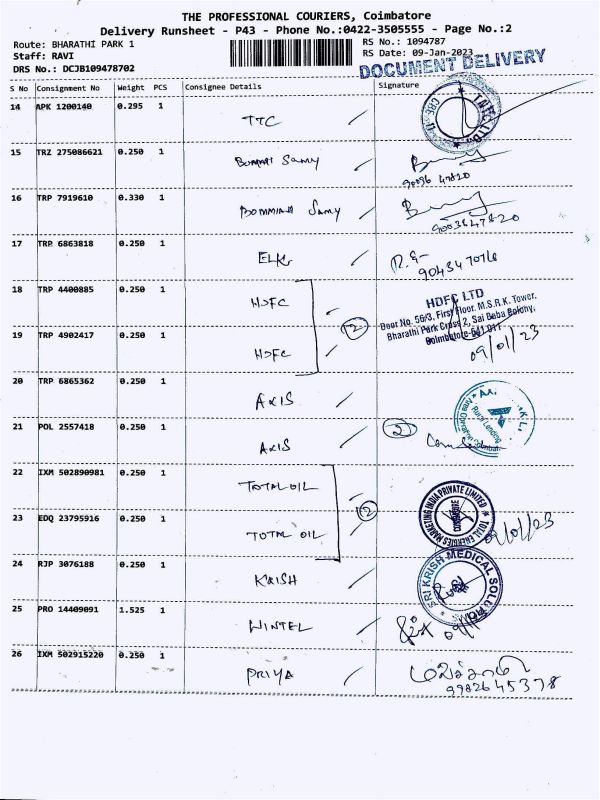 THE PROFESSIONAL COURIERS, Coimbatore
Delivery Runsheet - P43 - Phone No.:0422-3505555 - Page No.:2
Route: BHARATHI PARK 1 RS No.: 1094787
Staff: RAVI RS Date: 09-Jan-2023
DRS No.: DCJB109478702 DOCUMENT DELIVERY
S No Consignment No Weight PCS Consignee Details Signature
14 APK 1200140 0.295 1 TTC
15 TRZ 275086621 0.250 1 Samy
16 TRP 7919610 0.330 1 Bommiah Samy
9003847820
17 TRP 6863818 0.250 1 ELKG
18 TRP 4400885 0.250 1 HDFC
HDFC LTD
Door No. 56/3, First Floor, M.S.R.K. Tower,
Bharathi Park Cross 2, Sai Baba Kolony,
Coimbatore-641 011
19 TRP 4902417 0.250 1 HDFC 2 09/01/23
20 TRP 6865362 0.250 1 AXIS
21 POL 2557418 0.250 1 AXIS 2
22 IXM 502890981 0.250 1 TOTAL OIL
TOTAL ENERGIES MARKETING INDIA PRIVATE LIMITED
COIMBATORE
23 EDQ 23795916 0.250 1 TOTAL OIL 2 09/01/23
24 RJP 3076188 0.250 1 KRISH
SRI KRISH MEDICAL SOLUTION
25 PRO 14409091 1.525 1 WINTEL
26 IXM 502915220 0.250 1 PRIYA
9982645378